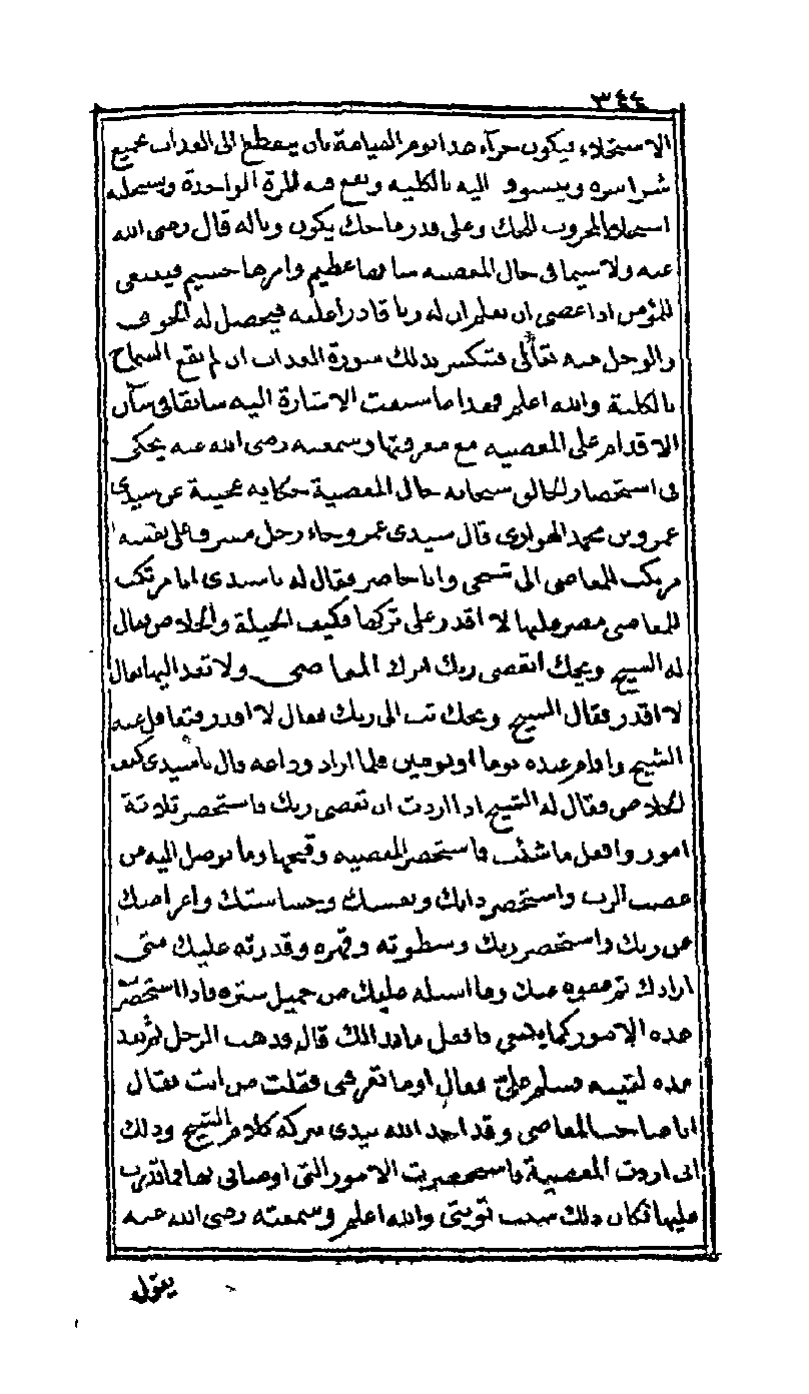 ٣٤٤
الاستحلاء فيكون جزاء هذا يوم القيامة بأن ينقطع الى العذاب بجميع
شراشره ويتسوف اليه بالكلية ويقع فيه المرة الواحدة ويستحليه
استحلاء المجروب للحك وعلى قدر ما حك يكون وباله قال رضى الله
عنه ولا سيما فى حال المعصية شانها عظيم وامرها جسيم فينبغى
للمؤمن اذا عصى ان يعلم ان له ربا قادرا عليه فيحصل له الخوف
والوجل منه تعالى فتنكسر بذلك سورة العذاب ان لم يقع السماح
بالكلية والله اعلم فهذا ما سبقت الاشارة اليه سابقا فى شأن
الاقدام على المعصية مع معرفتها وسمعته رضى الله عنه يحكى
فى استحضار الخالق سبحانه حال المعصية حكاية عجيبة عن سيدى
عمرو بن محمد الهوارى قال سيدى عمرو جاء رجل مسرف على نفسه
مرتكب للمعاصى الى شيخى وانا حاضر فقال له يا سيدى انا مرتكب
للمعاصى مصر عليها لا اقدر على تركها فكيف الحيلة والخلاص فقال
له الشيخ ويحك اتعصى ربك اترك المعاصى ولا تعد اليها فقال
لا اقدر فقال الشيخ ويحك تب الى ربك فقال لا اقدر فتغافل عنه
الشيخ واقام عنده يوما او يومين فلما اراد وداعه قال يا سيدى كيف
الخلاص فقال له الشيخ اذا اردت ان تعصى ربك فاستحضر ثلاثة
امور وافعل ما شئت فاستحضر المعصية وقبحها وما يوصل اليه من
غضب الرب واستحضر ذاتك ونفسك وخساستك واعراضك
عن ربك واستحضر ربك وسطوته وقهره وقدرته عليك متى
ارادك ثم عفوه عنك وما اسبله عليك من جميل ستره فاذا استحضرت
هذه الامور كما ينبغى فافعل ما بدا لك قال فذهب الرجل ثم بعد
مدة لقيته فسلم على فقال اوما تعرفنى فقلت من انت فقال
انا صاحب المعاصى وقد اخذ الله بيدى ببركة كلام الشيخ وذلك
انى اردت المعصية فاستحضرت الامور التى اوصانى بها فما قدرت
عليها فكان ذلك سبب توبتى والله اعلم وسمعته رضى الله عنه
يقول